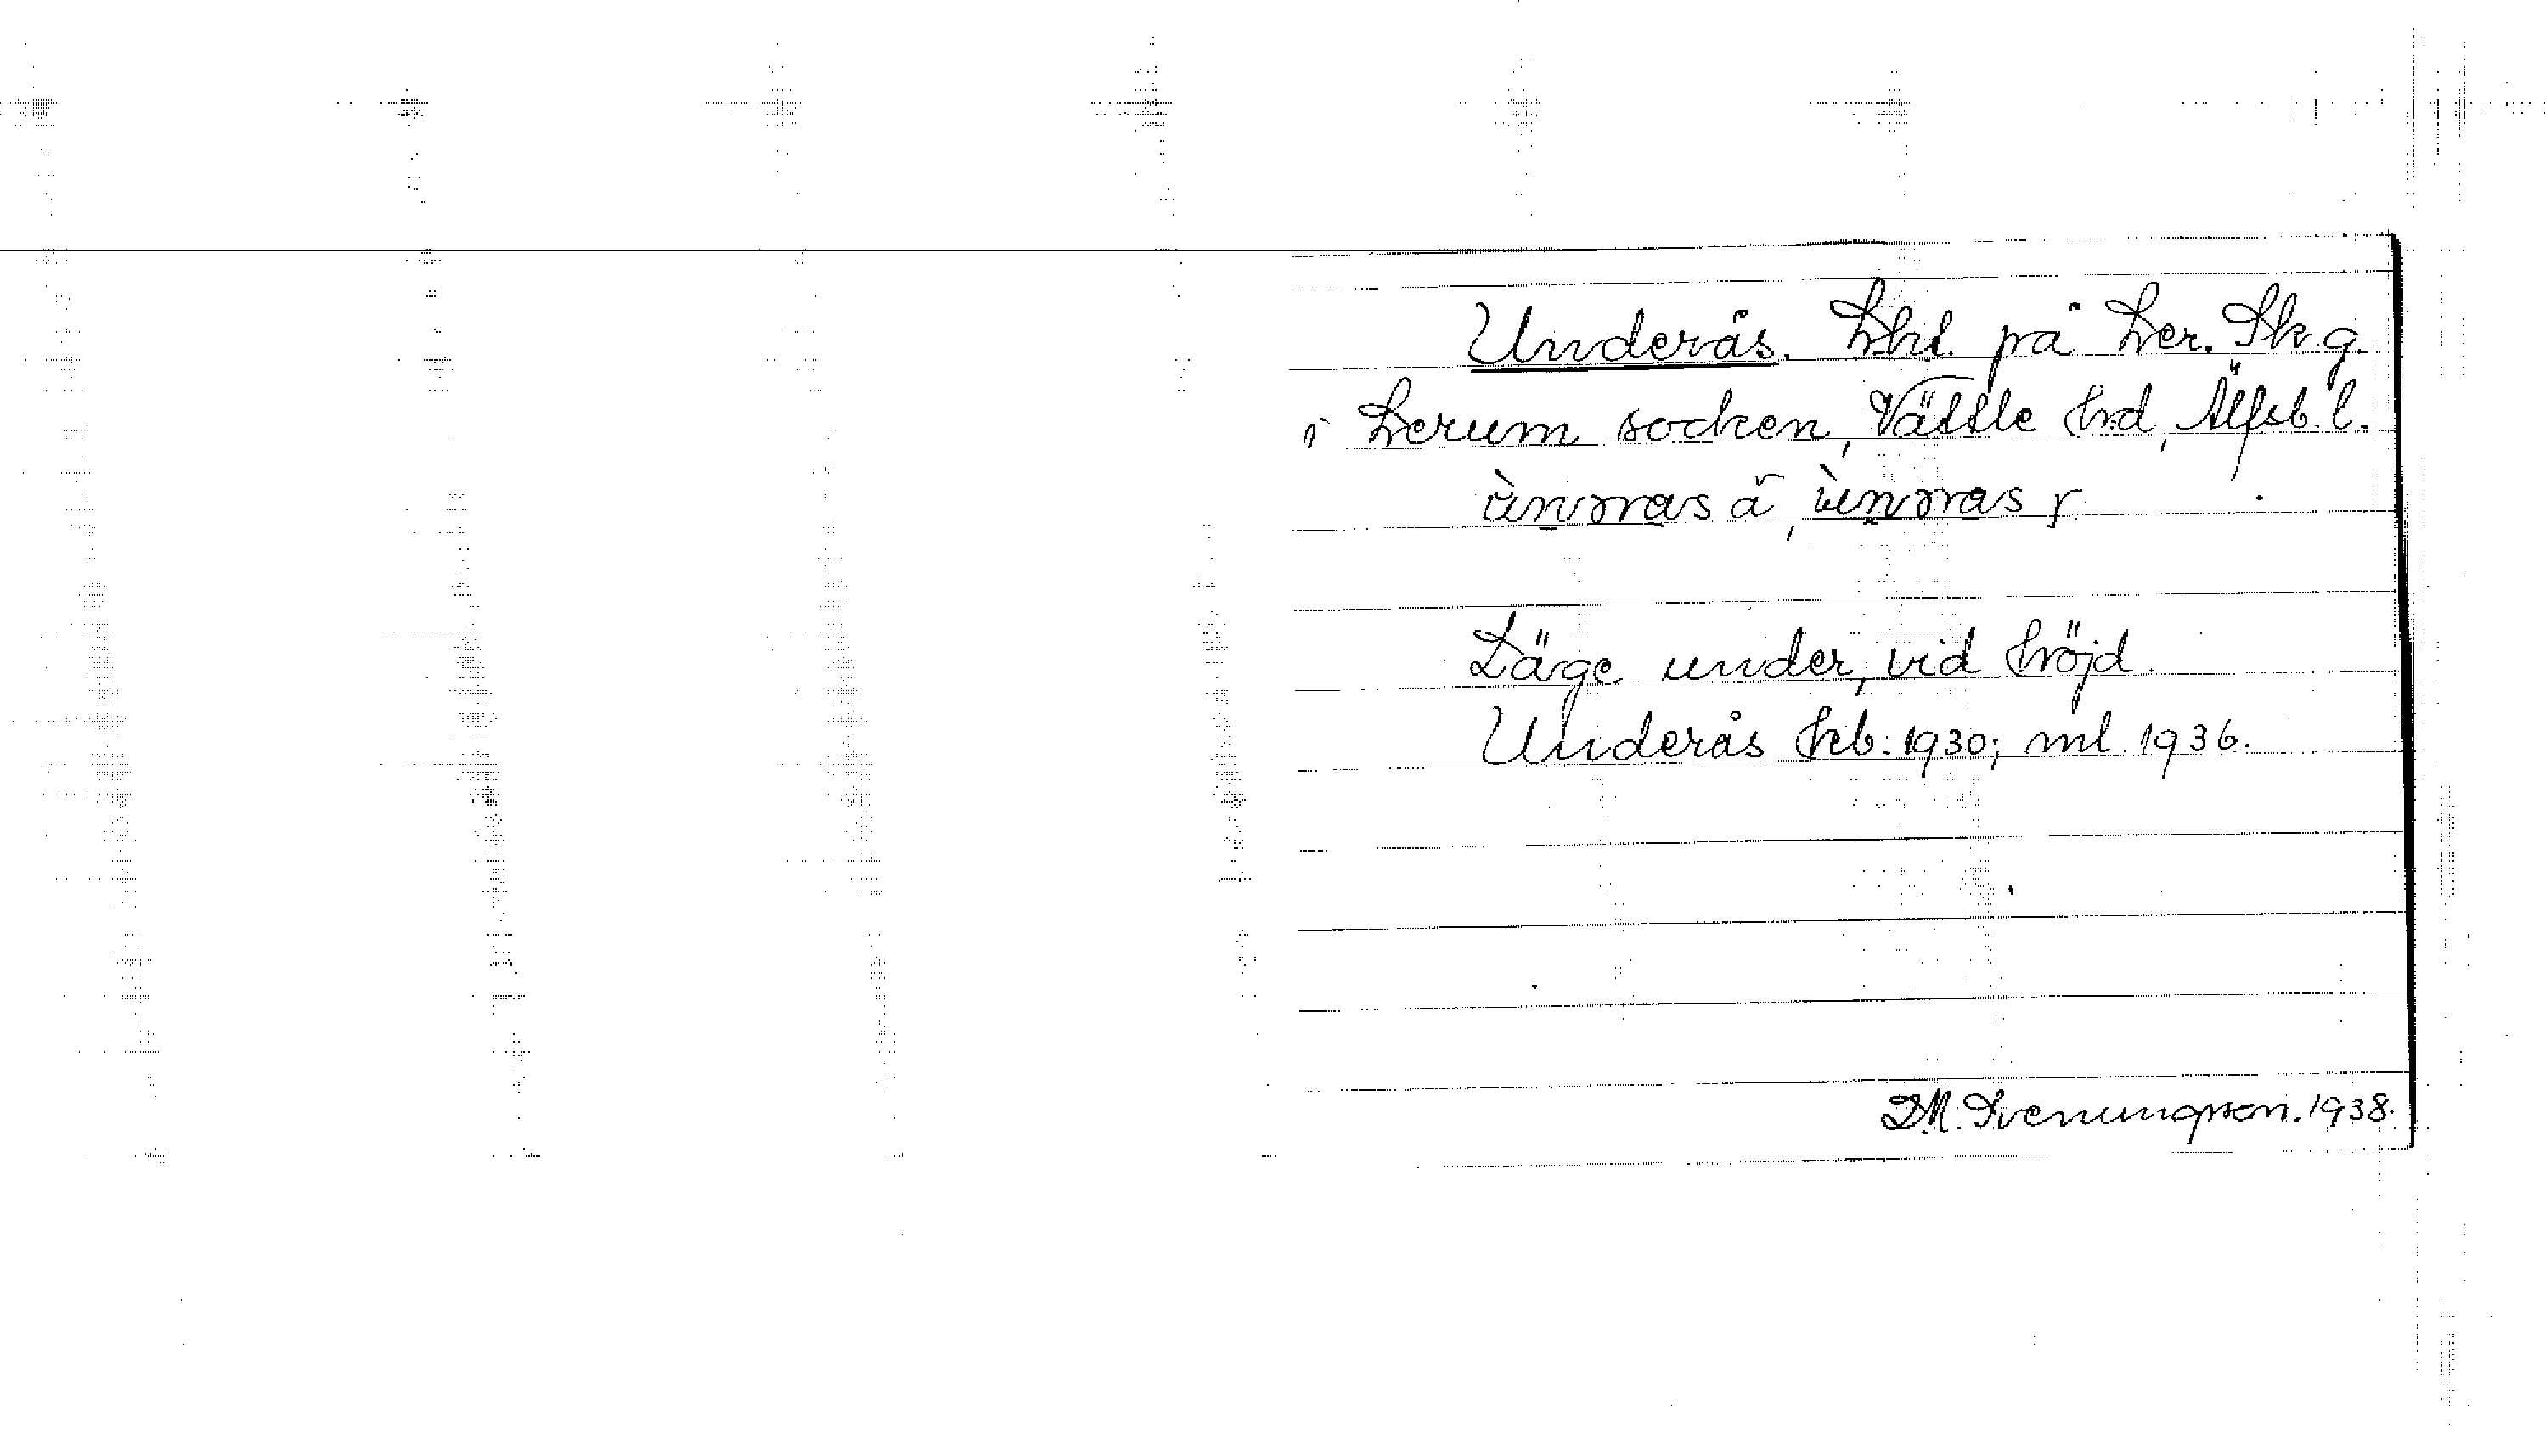 Underås. Lht. på Ler. Sk.g.
i Lerum socken, Vättle hd, Älfsb. l.
ùnrras ä, ùnrras r.
Läge under, vid höjd.
Underås hb: 1930; ml. 1936.
D.M. Svenungsson. 1938.